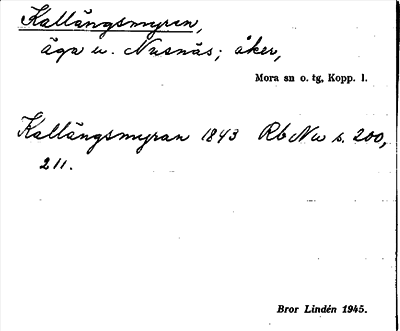 Kallängsmyren,
äga u. Nusnäs; åker,
Mora sn o. tg, Kopp. l.
Kallängsmyran 1843 Rb Nu s. 200,
211.
Bror Lindén 1945.